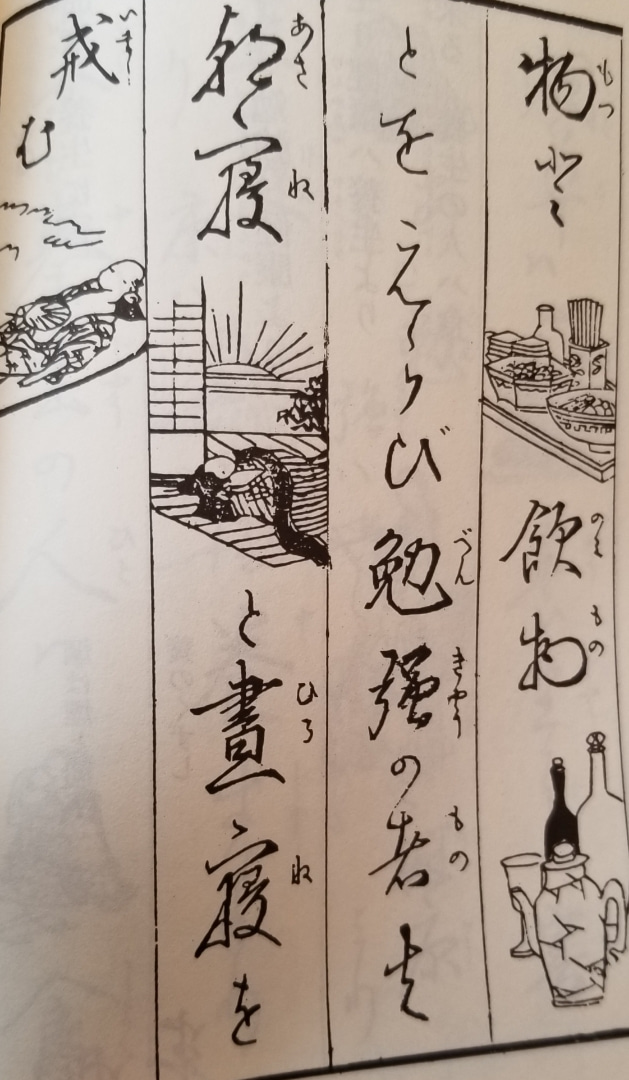 もつ のみ もの
物と飲物
べん きやう もの
とをえらび勉強の者は
あさ ね ひる ね
朝寝と晝寝を
いまし
戒む